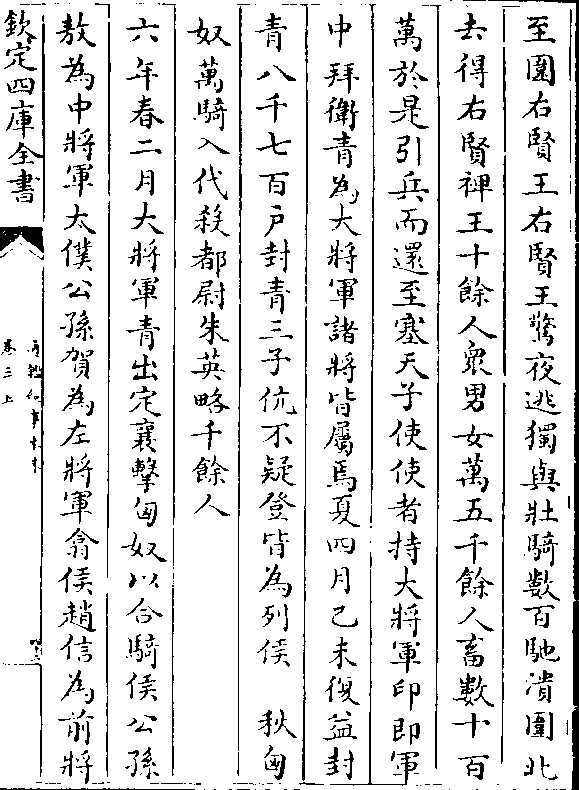 至圍右賢王右賢王驚夜逃獨與壯騎數百馳潰圍北
去得右賢裨王十餘人衆男女萬五千餘人畜數十百
萬於是引兵而還至塞天子使使者持大將軍印即軍
中拜衛青為大將軍諸將皆屬焉夏四月己未復益封
青八千七百户封青三子伉不疑登皆為列侯　秋匈
奴萬騎入代殺都尉朱英略千餘人
六年春二月大將軍青出定襄擊匈奴以合騎侯公孫
敖為中將軍太僕公孫賀為左將軍翕侯趙信為前將
欽定四庫全書
通鑑紀事本末
卷三上